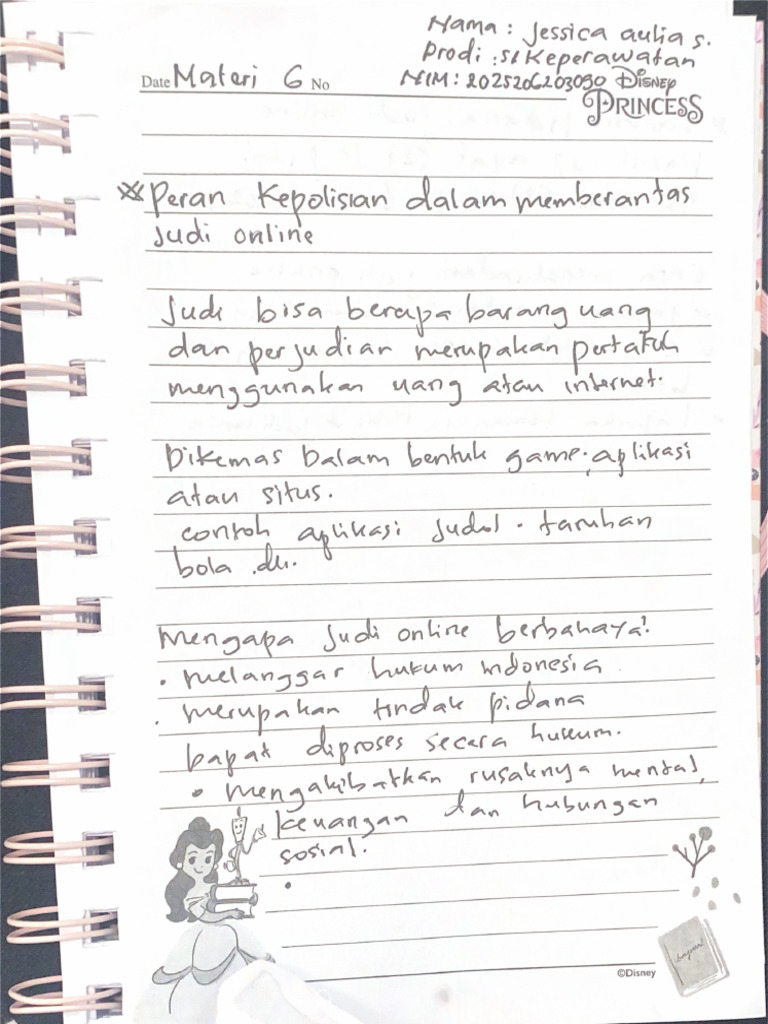 Nama : Jessica aulia s.
Prodi : S1 Keperawatan
Date Materi 6 No
NIM : 2025206203090 Disney
PRINCESS
※ Peran Kepolisian dalam memberantas
Judi online
Judi bisa berupa barang uang
dan perjudian merupakan pertatuh
menggunakan uang atau internet.
Dikemas Dalam bentuk game, aplikasi
atau situs.
contoh aplikasi Judol. taruhan
bola .dll.
Mengapa Judi online berbahaya?
• melanggar hukum indonesia
• merupakan tindak pidana
Dapat diproses secara hukum.
• mengakibatkan rusaknya mental,
keuangan dan hubungan
sosial.
•
©Disney